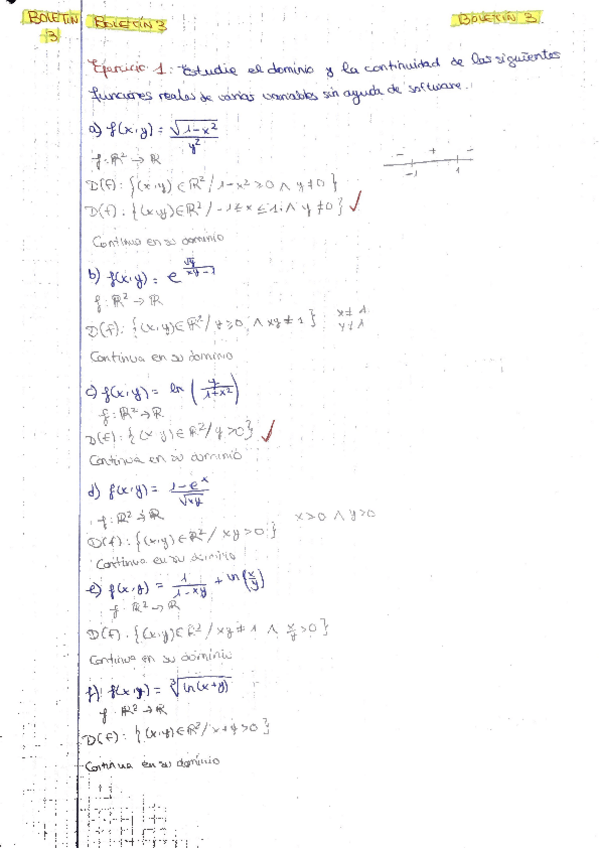 BOLETÍN 3
BOLETÍN 3
BOLETÍN 3
Ejercicio 1: Estudie el dominio y la continuidad de las siguientes
funciones reales de varias variables sin ayuda de software.
a) f(x,y) = √(1-x²) / y²
f: ℝ² → ℝ
- + -
-1 1
D(f): {(x,y) ∈ ℝ² / 1-x² ≥ 0 ∧ y ≠ 0}
D(f): {(x,y) ∈ ℝ² / -1 ≤ x ≤ 1 ∧ y ≠ 0} ✓
Continua en su dominio
b) f(x,y) = e^(√y / (xy-1))
f: ℝ² → ℝ
D(f): {(x,y) ∈ ℝ² / y ≥ 0 ∧ xy ≠ 1} x ≠ 1
y ≠ 1
Continua en su dominio
c) f(x,y) = ln (y / (1+x²))
f: ℝ² → ℝ
D(f): {(x,y) ∈ ℝ² / y > 0} ✓
Continua en su dominio
d) f(x,y) = (1-e^x) / √(xy)
f: ℝ² → ℝ x > 0 ∧ y > 0
D(f): {(x,y) ∈ ℝ² / xy > 0}
Continua en su dominio
e) f(x,y) = 1 / (1-xy) + ln (x/y)
f: ℝ² → ℝ
D(f): {(x,y) ∈ ℝ² / xy ≠ 1 ∧ x/y > 0}
Continua en su dominio
f) f(x,y) = ³√(ln(x+y))
f: ℝ² → ℝ
D(f): {(x,y) ∈ ℝ² / x+y > 0}
Continua en su dominio